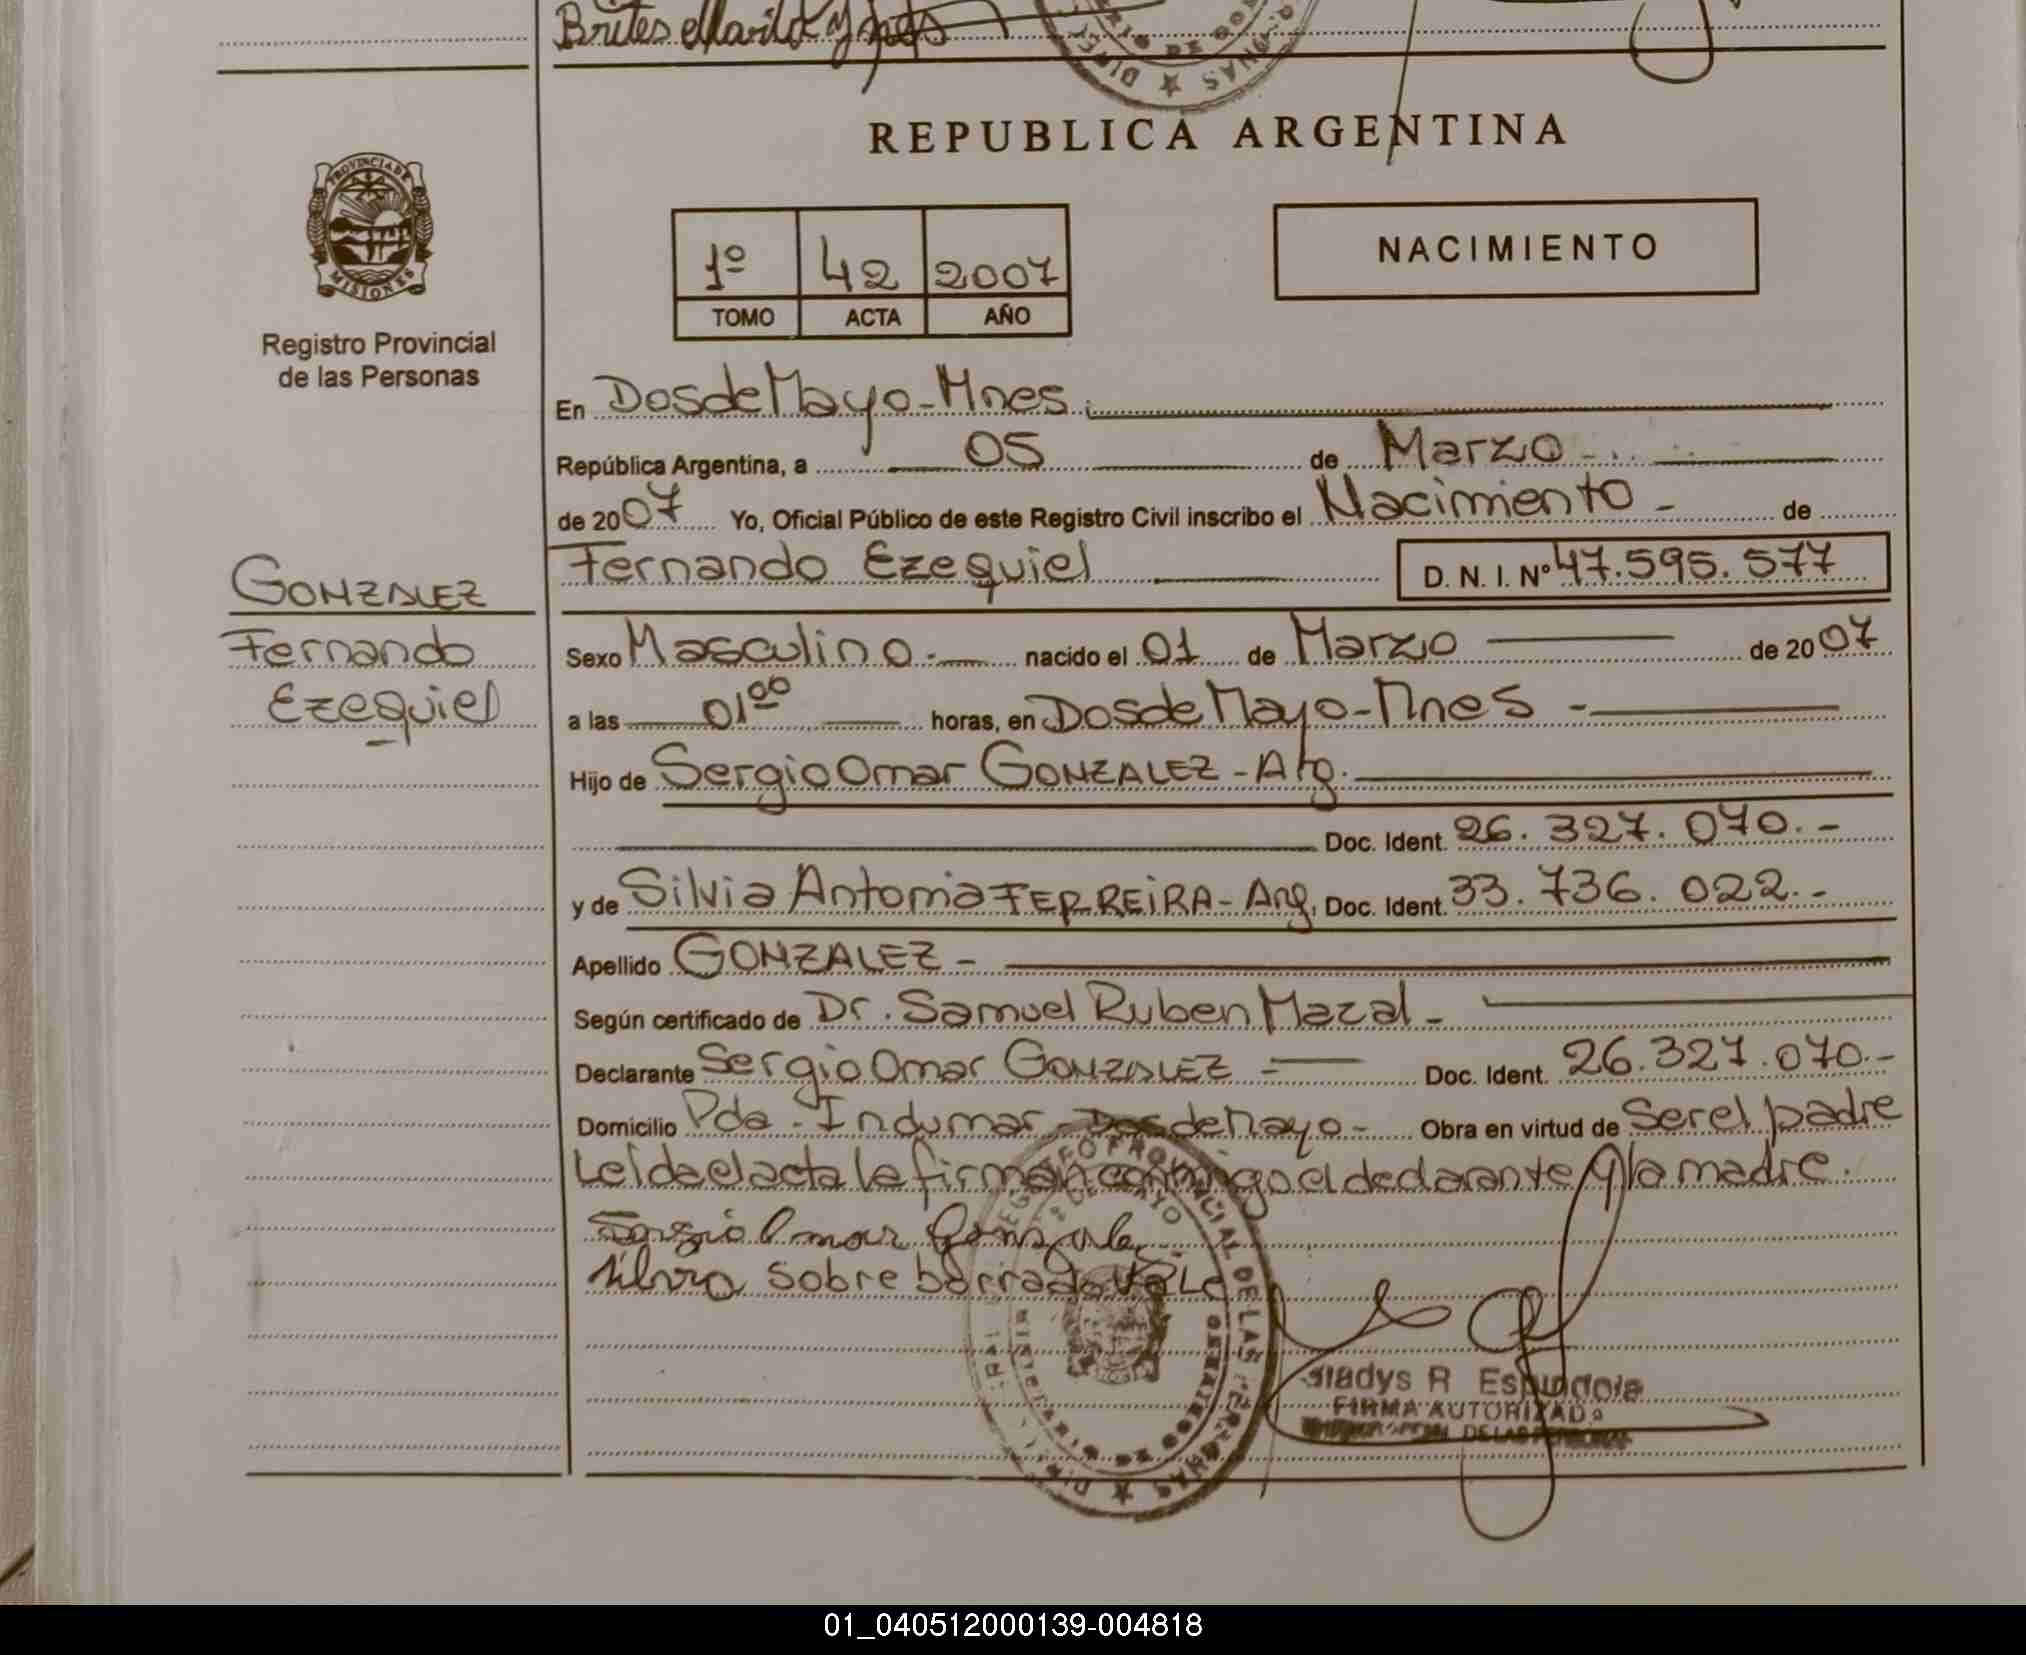 Brites Marilda Ynés
REPUBLICA ARGENTINA
PROVINCIA DE
MISIONES
1º 42 2007
TOMO ACTA AÑO
NACIMIENTO
Registro Provincial
de las Personas
En Dos de Mayo - Mnes.
República Argentina, a 05 de Marzo
de 2007 Yo, Oficial Público de este Registro Civil inscribo el Nacimiento - de
GONZALEZ
Fernando
Ezequiel
Fernando Ezequiel D. N. I. Nº 47.595.577
Sexo Masculino. nacido el 01 de Marzo de 2007
a las 01⁰⁰ horas, en Dos de Mayo - Mnes -
Hijo de Sergio Omar GONZALEZ - Arg.
Doc. Ident. 26.327.070.-
y de Silvia Antonia FERREIRA - Arg. Doc. Ident. 33.736.022.-
Apellido GONZALEZ -
Según certificado de Dr. Samuel Ruben Mazal -
Declarante Sergio Omar GONZALEZ Doc. Ident. 26.327.070.-
Domicilio Pda. Indumar - Dos de Mayo - Obra en virtud de Ser el padre
Leída el acta la firman conmigo el declarante y la madre.
Sergio Omar Gonzalez
Silvia sobre borrado VALE
REGISTRO PROVINCIAL DE LAS PERSONAS
Gladys R Espindola
FIRMA AUTORIZADA
DE LAS PERSONAS
01_040512000139-004818